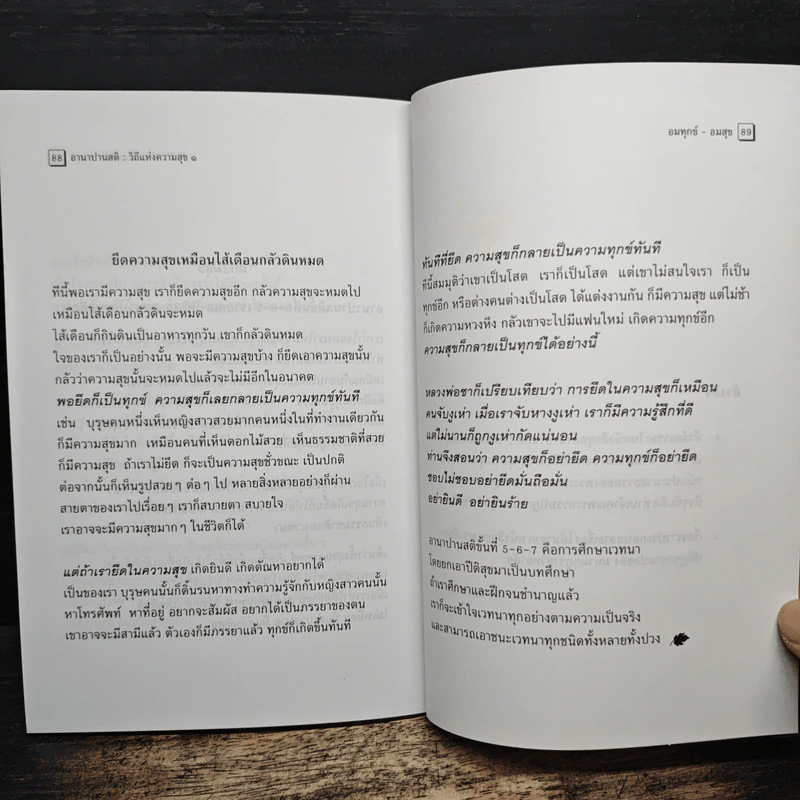 88 อานาปานสติ : วิถีแห่งความสุข ๑
ยึดความสุขเหมือนไส้เดือนกลัวดินหมด
ทีนี้พอเรามีความสุข เราก็ยึดความสุขอีก กลัวความสุขจะหมดไป
เหมือนไส้เดือนกลัวดินจะหมด
ไส้เดือนก็กินดินเป็นอาหารทุกวัน เขาก็กลัวดินหมด
ใจของเราก็เป็นอย่างนั้น พอจะมีความสุขบ้าง ก็ยึดเอาความสุขนั้น
กลัวว่าความสุขนั้นจะหมดไปแล้วจะไม่มีอีกในอนาคต
พอยึดก็เป็นทุกข์ ความสุขก็เลยกลายเป็นความทุกข์ทันที
เช่น บุรุษคนหนึ่งเห็นหญิงสาวสวยมากคนหนึ่งในที่ทำงานเดียวกัน
ก็มีความสุขมาก เหมือนคนที่เห็นดอกไม้สวย เห็นธรรมชาติที่สวย
ก็มีความสุข ถ้าเราไม่ยึด ก็จะเป็นความสุขชั่วขณะ เป็นปกติ
ต่อจากนั้นก็เห็นรูปสวยๆ ต่อๆ ไป หลายสิ่งหลายอย่างก็ผ่าน
สายตาของเราไปเรื่อยๆ เราก็สบายตา สบายใจ
เราอาจจะมีความสุขมากๆ ในชีวิตก็ได้
แต่ถ้าเรายึดในความสุข เกิดยินดี เกิดตัณหาอยากได้
เป็นของเรา บุรุษคนนั้นก็ดิ้นรนหาทางทำความรู้จักกับหญิงสาวคนนั้น
หาโทรศัพท์ หาที่อยู่ อยากจะสัมผัส อยากได้เป็นภรรยาของตน
เขาอาจจะมีสามีแล้ว ตัวเองก็มีภรรยาแล้ว ทุกข์ก็เกิดขึ้นทันที
อมทุกข์ - อมสุข 89
ทันทีที่ยึด ความสุขก็กลายเป็นความทุกข์ทันที
ทีนี้สมมุติว่าเขาเป็นโสด เราก็เป็นโสด แต่เขาไม่สนใจเรา ก็เป็น
ทุกข์อีก หรือต่างคนต่างเป็นโสด ได้แต่งงานกัน ก็มีความสุข แต่ไม่ช้า
ก็เกิดความหวงหึง กลัวเขาจะไปมีแฟนใหม่ เกิดความทุกข์อีก
ความสุขก็กลายเป็นทุกข์ได้อย่างนี้
หลวงพ่อชาก็เปรียบเทียบว่า การยึดในความสุขก็เหมือน
คนจับงูเห่า เมื่อเราจับหางงูเห่า เราก็มีความรู้สึกที่ดี
แต่ไม่นานก็ถูกงูเห่ากัดแน่นอน
ท่านจึงสอนว่า ความสุขก็อย่ายึด ความทุกข์ก็อย่ายึด
ชอบไม่ชอบอย่ายึดมั่นถือมั่น
อย่ายินดี อย่ายินร้าย
อานาปานสติขั้นที่ 5-6-7 คือการศึกษาเวทนา
โดยยกเอาปีติสุขมาเป็นบทศึกษา
ถ้าเราศึกษาและฝึกจนชำนาญแล้ว
เราก็จะเข้าใจเวทนาทุกอย่างตามความเป็นจริง
และสามารถเอาชนะเวทนาทุกชนิดทั้งหลายทั้งปวง